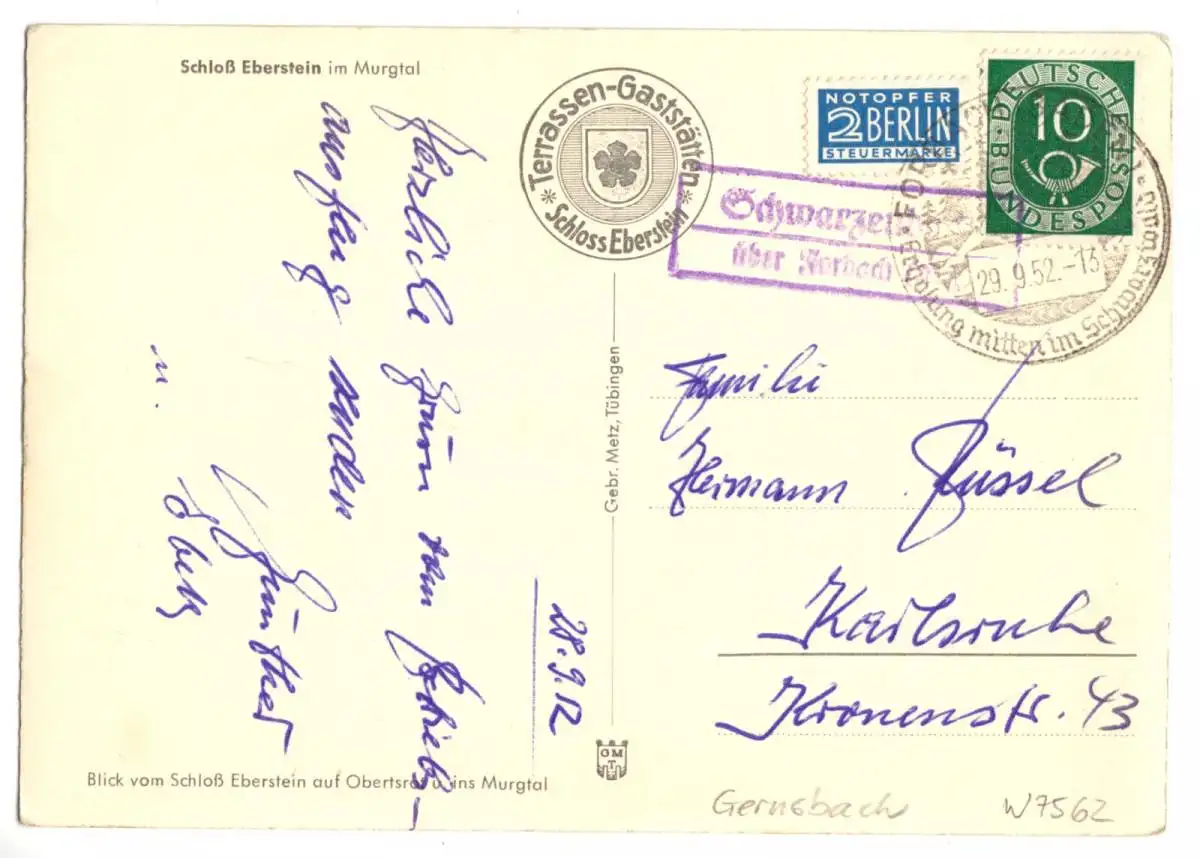 Schloß Eberstein im Murgtal
Terrassen-Gaststätten
Schloss Eberstein
NOTOPFER
2 BERLIN
STEUERMARKE
DEUTSCHE
BUNDESPOST
10
Schwarzen
über Forbach
29. 9. 52.-13
Erholung mitten im Schwarzwald
28. 9. 52
Herzliche Grüße vom Betriebs-
ausflug senden
Günther
u.
Gebr. Metz, Tübingen
Familie
Hermann Füssel
Karlsruhe
Kronenstr. 43
GMT
Blick vom Schloß Eberstein auf Obertsrot u. ins Murgtal
Gernsbach
W7562